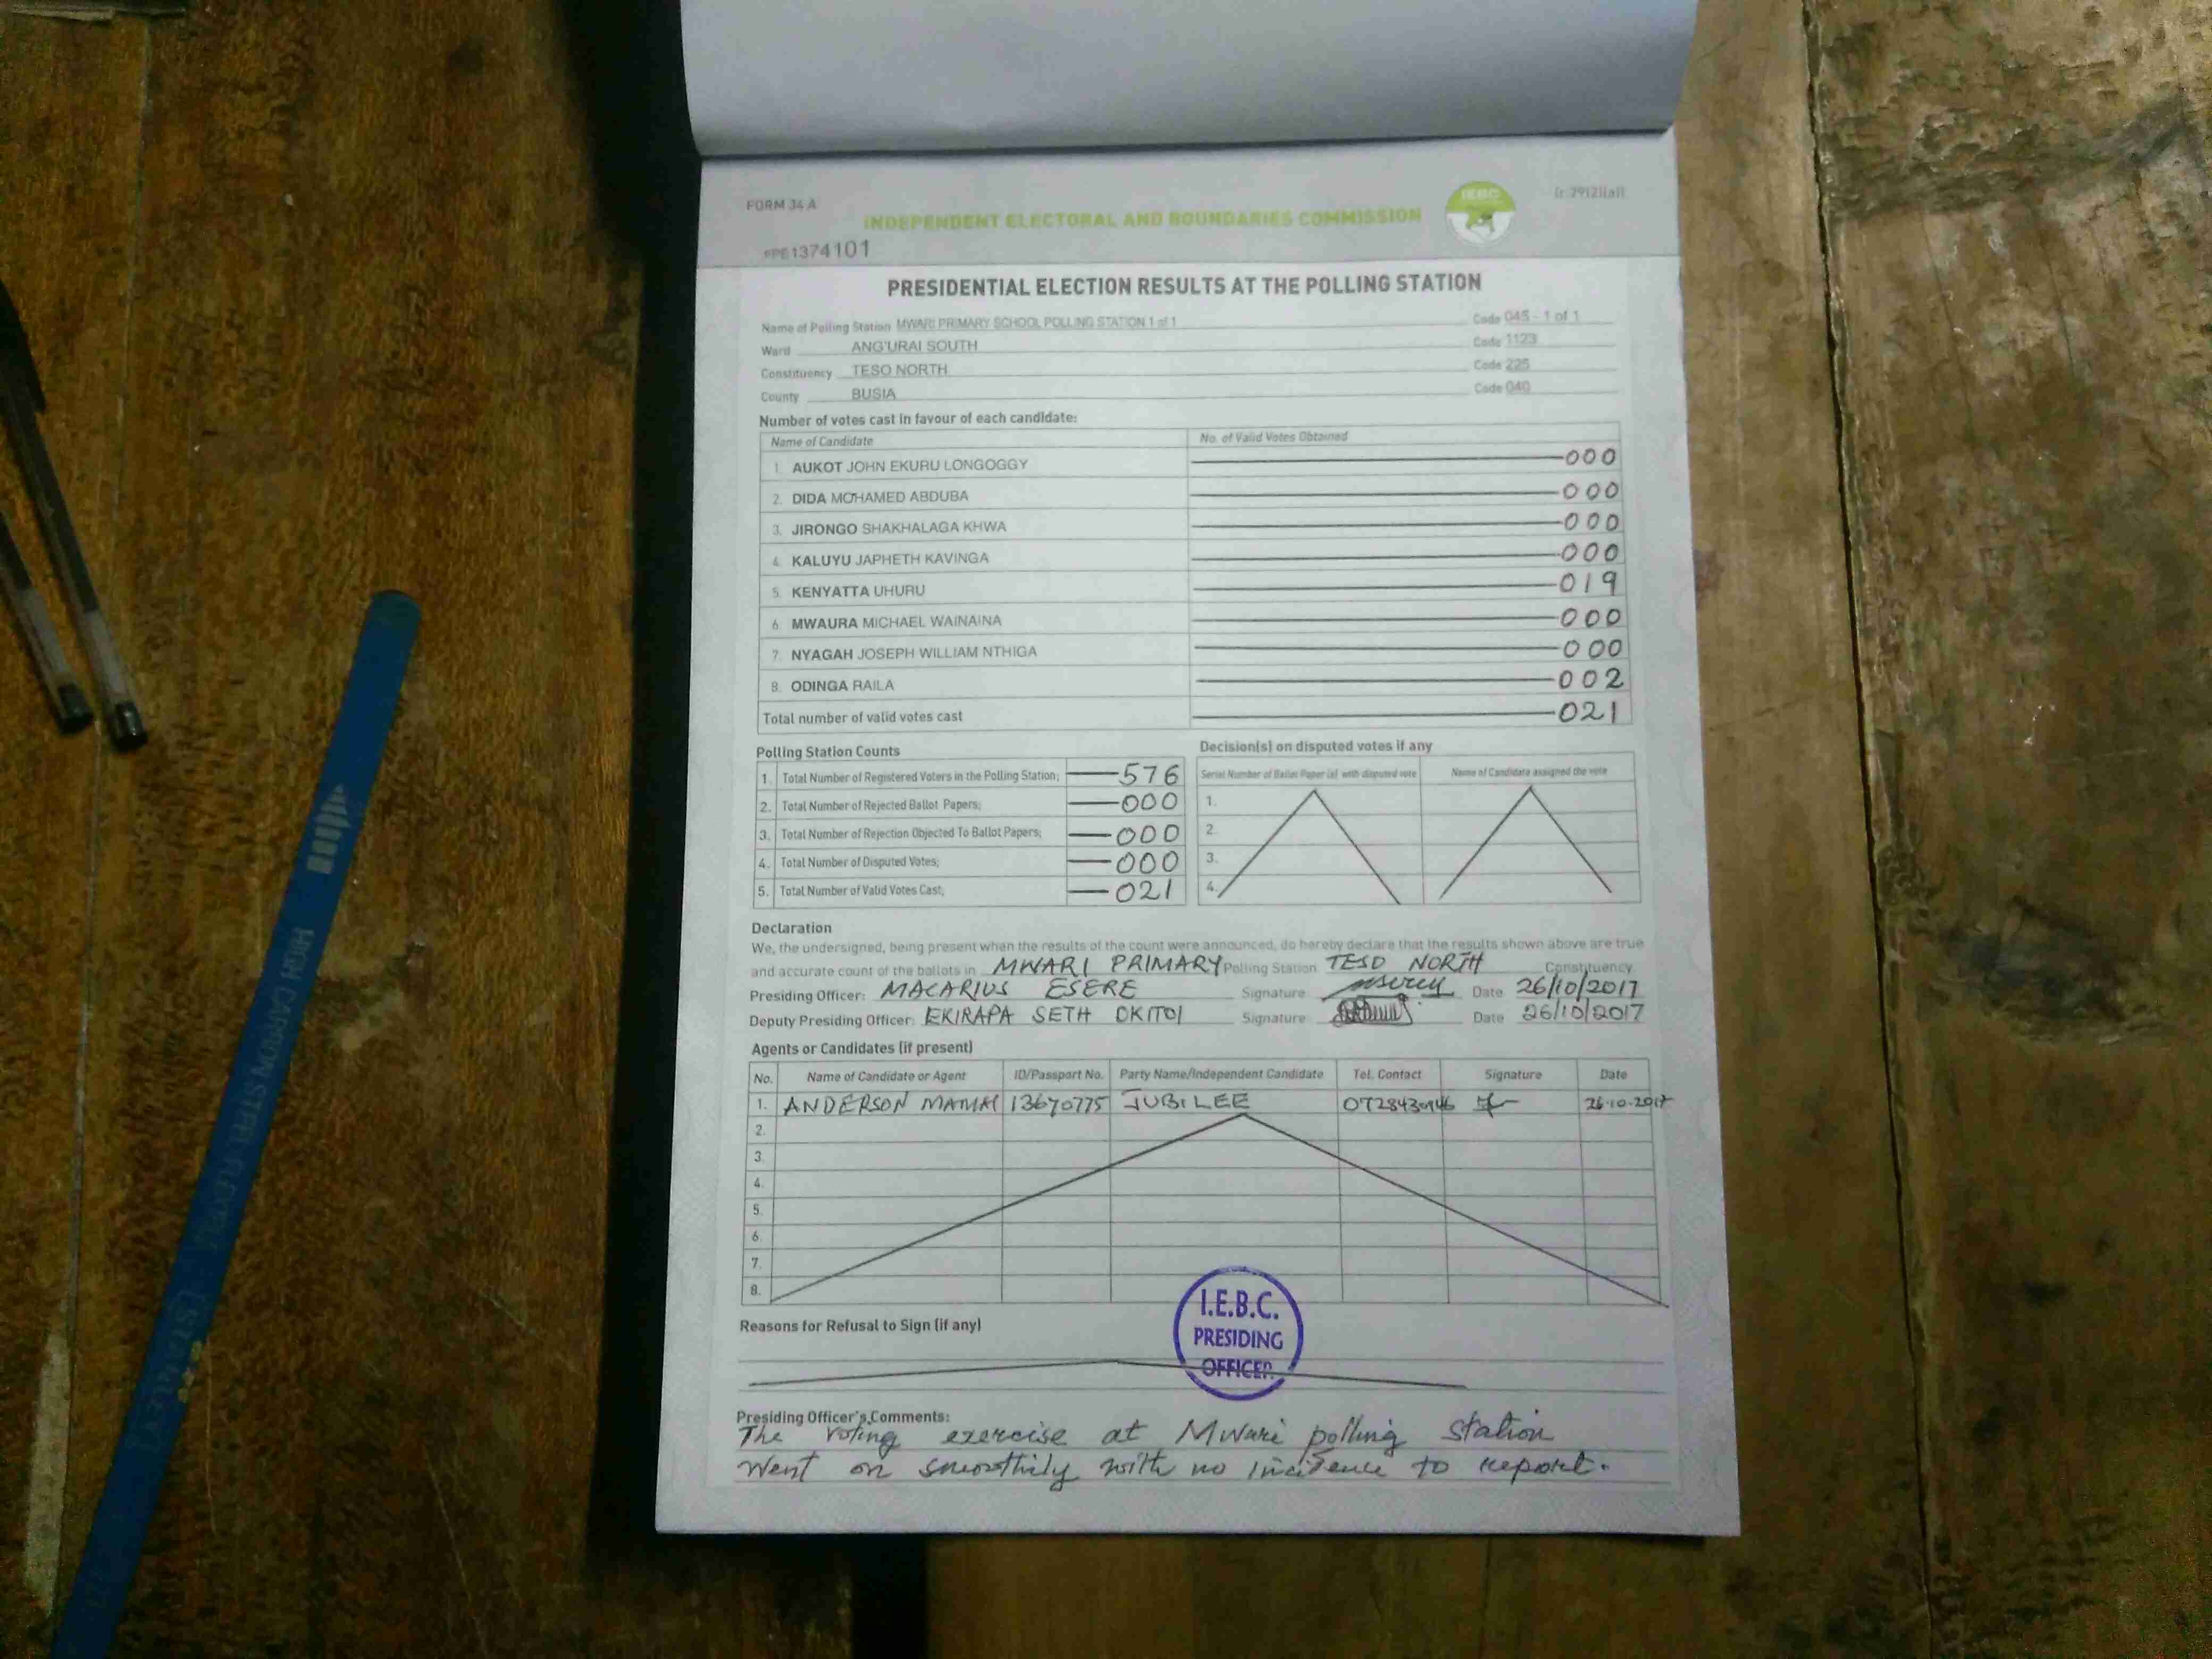 FORM 34 A
INDEPENDENT ELECTORAL AND BOUNDARIES COMMISSION
IEBC
1374101
PRESIDENTIAL ELECTION RESULTS AT THE POLLING STATION
Name of Polling Station MWARI PRIMARY SCHOOL POLLING STATION 1 of 1 Code 045 - 1 of 1
Ward ANG'URAI SOUTH Code 1123
Constituency TESO NORTH Code 225
County BUSIA Code 040
Number of votes cast in favour of each candidate:
Name of Candidate No. of Valid Votes Obtained
1. AUKOT JOHN EKURU LONGOGGY 000
2. DIDA MOHAMED ABDUBA 000
3. JIRONGO SHAKHALAGA KHWA 000
4. KALUYU JAPHETH KAVINGA 000
5. KENYATTA UHURU 019
6. MWAURA MICHAEL WAINAINA 000
7. NYAGAH JOSEPH WILLIAM NTHIGA 000
8. ODINGA RAILA 002
Total number of valid votes cast 021
Polling Station Counts
1. Total Number of Registered Voters in the Polling Station; 576
2. Total Number of Rejected Ballot Papers; 000
3. Total Number of Rejection Objected To Ballot Papers; 000
4. Total Number of Disputed Votes; 000
5. Total Number of Valid Votes Cast; 021
Decision(s) on disputed votes if any
Serial Number of Ballot Paper (s) with disputed vote Name of Candidate assigned the vote
1.
2.
3.
4.
Declaration
We, the undersigned, being present when the results of the count were announced, do hereby declare that the results shown above are true
and accurate count of the ballots in MWARI PRIMARY Polling Station TESO NORTH Constituency.
Presiding Officer: MACARIUS ESERE Signature Date 26/10/2017
Deputy Presiding Officer: EKIRAPA SETH OKITOI Signature Date 26/10/2017
Agents or Candidates (if present)
No. Name of Candidate or Agent ID/Passport No. Party Name/Independent Candidate Tel. Contact Signature Date
1. ANDERSON 13670775 JUBILEE 26-10-2017
2.
3.
4.
5.
6.
7.
8.
Reasons for Refusal to Sign (if any)
I.E.B.C.
PRESIDING
OFFICER
Presiding Officer's Comments:
The voting exercise at Mwari polling station
went on smoothily with no incidence to report.
HIGH CARBON STEEL